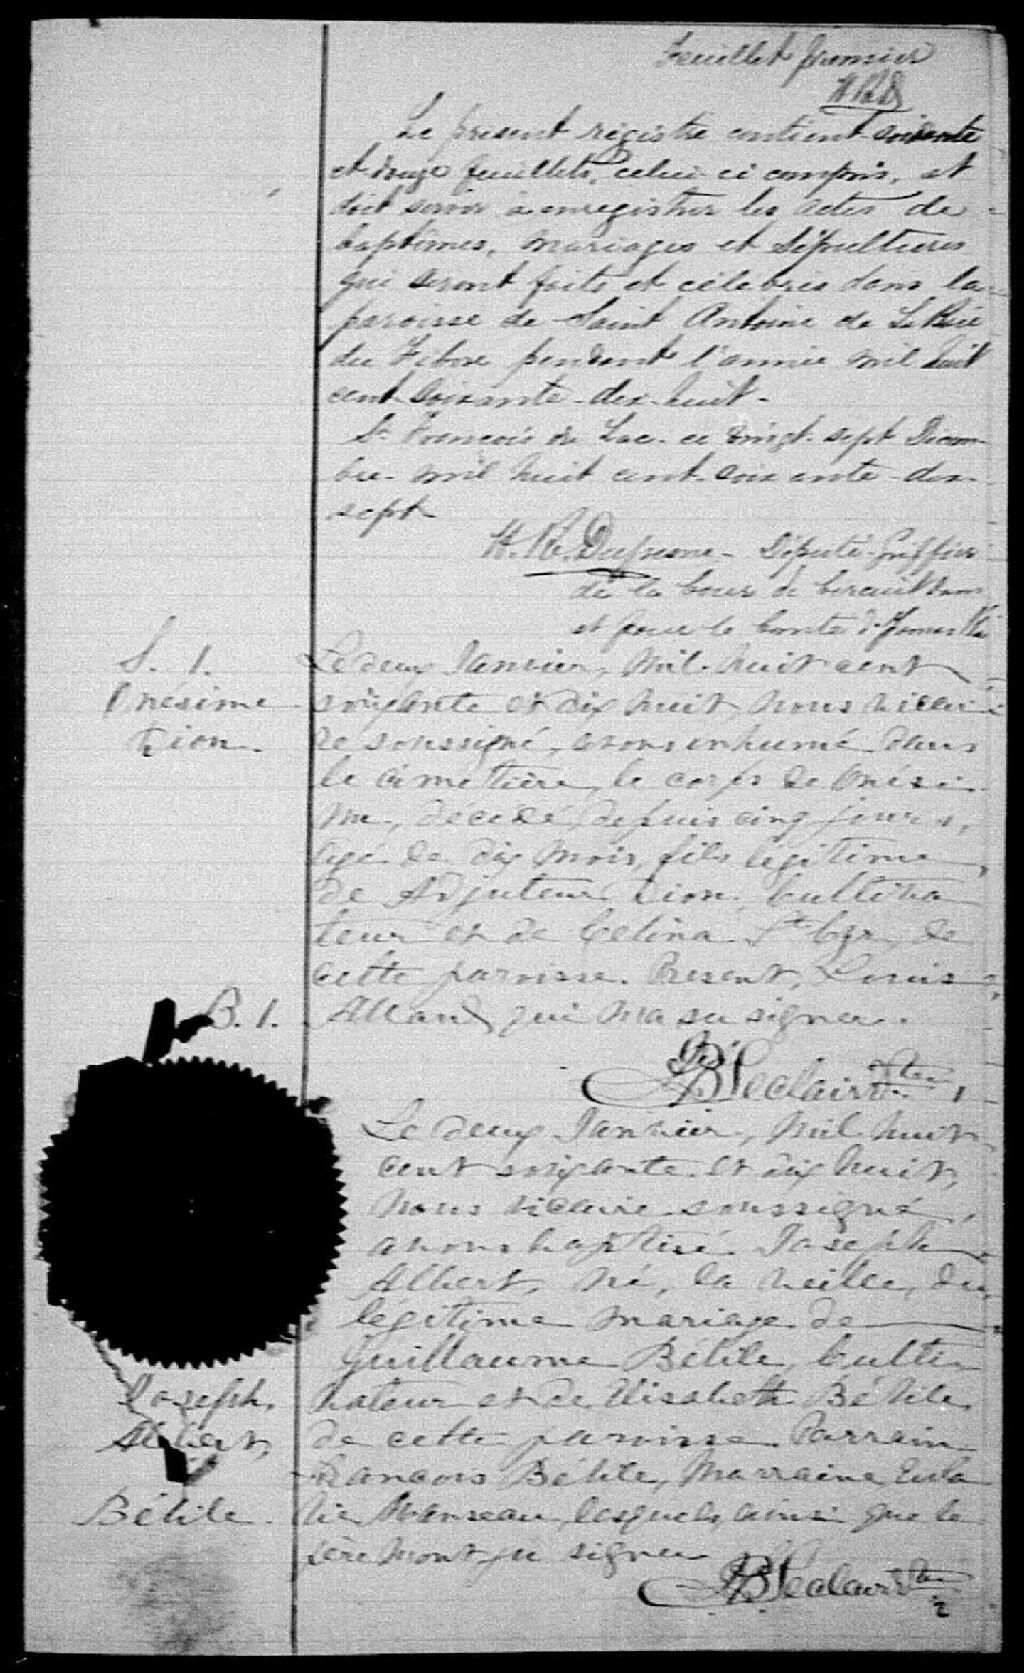 Feuillet premier
Le présent régistre contient soixante
et douze feuillets, celui-ci compris, et
doit servir à enregistrer les actes de
baptêmes, mariages et sépultures
qui seront faits et célébrés dans la
paroisse de Saint Antoine de La Baie
du Febvre pendant l'année mil huit
cent soixante-dix-huit.
St François du Lac ce vingt-sept Décem-
bre mil huit cent soixante-dix-
sept
H. R. Dufresne - Député-Greffier
de la Cour de Circuit dans
et pour le Comté d'Yamaska
S. 1.
Onésime
Lion.
Le deux Janvier, mil huit cent
soixante et dix huit, nous vicai-
re soussigné, avons inhumé dans
le cimetière, le corps de Onési-
me, décédé depuis cinq jours,
agé de dix mois, fils légitime
de Adjuteur Lion, cultiva
teur et de Celina St Cyr, de
cette paroisse. Présent, Louis
Allard qui n'a su signer.
Leclair Ptre
B. 1.
Joseph
Albert,
Bélile.
Le deux Janvier, mil huit
cent soixante et dix huit,
nous vicaire soussigné,
avons baptisé Joseph
Albert, né, la veille, du
légitime mariage de
Guillaume Bélile, culti
vateur et de Elisabeth Bélile
de cette paroisse. Parrain
François Bélile, Marraine, Eula
lie Manseau, lesquels, ainsi que le
père n'ont pu signer
Leclair Ptre